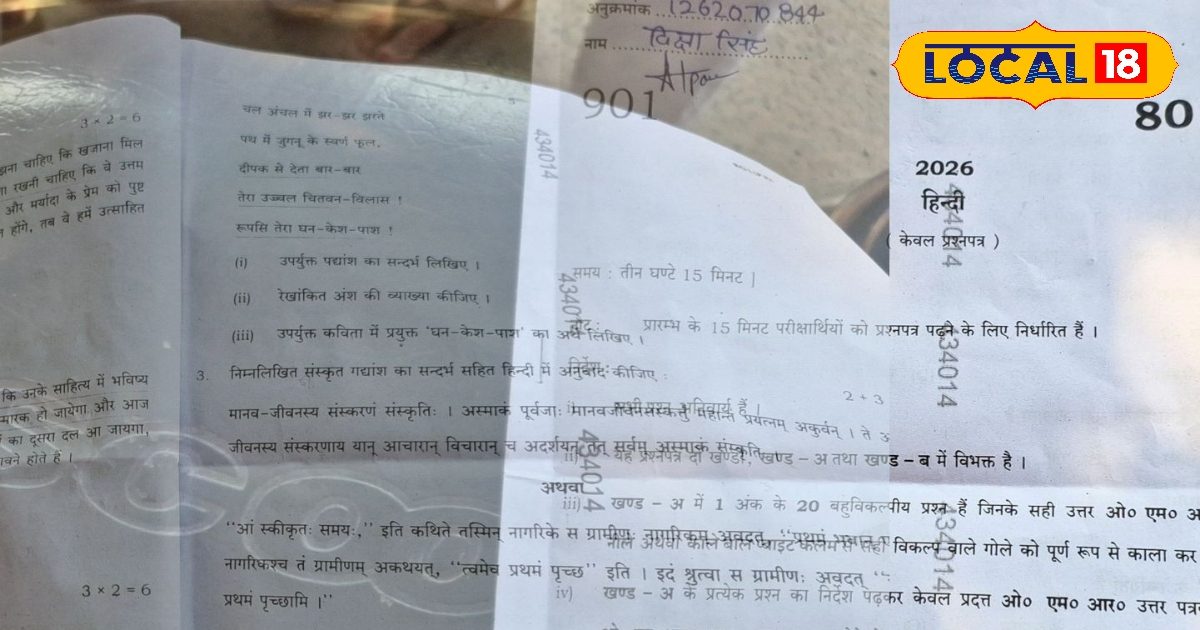 3 × 2 = 6
झना चाहिए कि खजाना मिल
रखनी चाहिए कि वे उत्तम
और मर्यादा के प्रेम को पुष्ट
होंगे, तब वे हमें उत्साहित
कि उनके साहित्य में भविष्य
मारक हो जायेगा और आज
का दूसरा दल आ जायगा,
वने होते हैं ।
3 × 2 = 6
चल अंचल में झर-झर झरते
पथ में जुगनू के स्वर्ण फूल,
दीपक से देता बार-बार
तेरा उज्ज्वल चितवन-विलास !
रूपसि तेरा घन-केश-पाश !
(i) उपर्युक्त पद्यांश का सन्दर्भ लिखिए ।
(ii) रेखांकित अंश की व्याख्या कीजिए ।
(iii) उपर्युक्त कविता में प्रयुक्त 'घन-केश-पाश' का अर्थ लिखिए ।
3. निम्नलिखित संस्कृत गद्यांश का सन्दर्भ सहित हिन्दी में अनुवाद कीजिए :
2 + 3
मानव-जीवनस्य संस्करणं संस्कृतिः । अस्माकं पूर्वजाः मानवजीवनं संस्कर्तुं महान्तं प्रयत्नम् अकुर्वन् । ते अ
जीवनस्य संस्करणाय यान् आचारान् विचारान् च अदर्शयन् तत् सर्वम् अस्माकं संस्कृतिः
अथवा
“आं स्वीकृतः समयः,” इति कथिते तस्मिन् नागरिके स ग्रामीणः नागरिकम् अवदत्, “प्रथमं भवान्
नागरिकश्च तं ग्रामीणम् अकथयत्, “त्वमेव प्रथमं पृच्छ” इति । इदं श्रुत्वा स ग्रामीणः अवदत् “
प्रथमं पृच्छामि ।”
अनुक्रमांक 1262070844
नाम दिक्षा सिंह
901
LOCAL 18
80
2026
हिन्दी
( केवल प्रश्नपत्र )
समय : तीन घण्टे 15 मिनट ]
नोट : प्रारम्भ के 15 मिनट परीक्षार्थियों को प्रश्नपत्र पढ़ने के लिए निर्धारित हैं ।
निर्देश :
i) सभी प्रश्न अनिवार्य हैं ।
ii) यह प्रश्नपत्र दो खण्डों, खण्ड – अ तथा खण्ड – ब में विभक्त है ।
iii) खण्ड – अ में 1 अंक के 20 बहुविकल्पीय प्रश्न हैं जिनके सही उत्तर ओ० एम० अ
नीले अथवा काले बाल प्वाइंट कलम से सही विकल्प वाले गोले को पूर्ण रूप से काला कर
iv) खण्ड – अ के प्रत्येक प्रश्न का निर्देश पढ़कर केवल प्रदत्त ओ० एम० आर० उत्तर पत्र
434014
434014
434014
434014
434014
434014